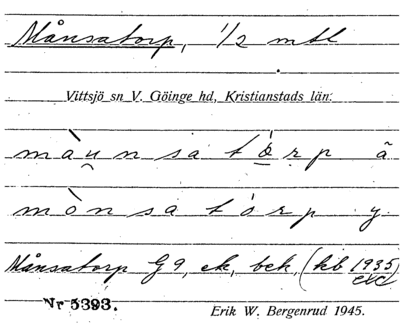 Månsatorp, 1/2 mtl
Vittsjö sn V. Göinge hd, Kristianstads län.
màu̯nsató̲ṛp ã
mònsatórp y.
Månsatorp G9, ek, bek, (kb 1935 etc
Nr 5393. Erik W. Bergenrud 1945.